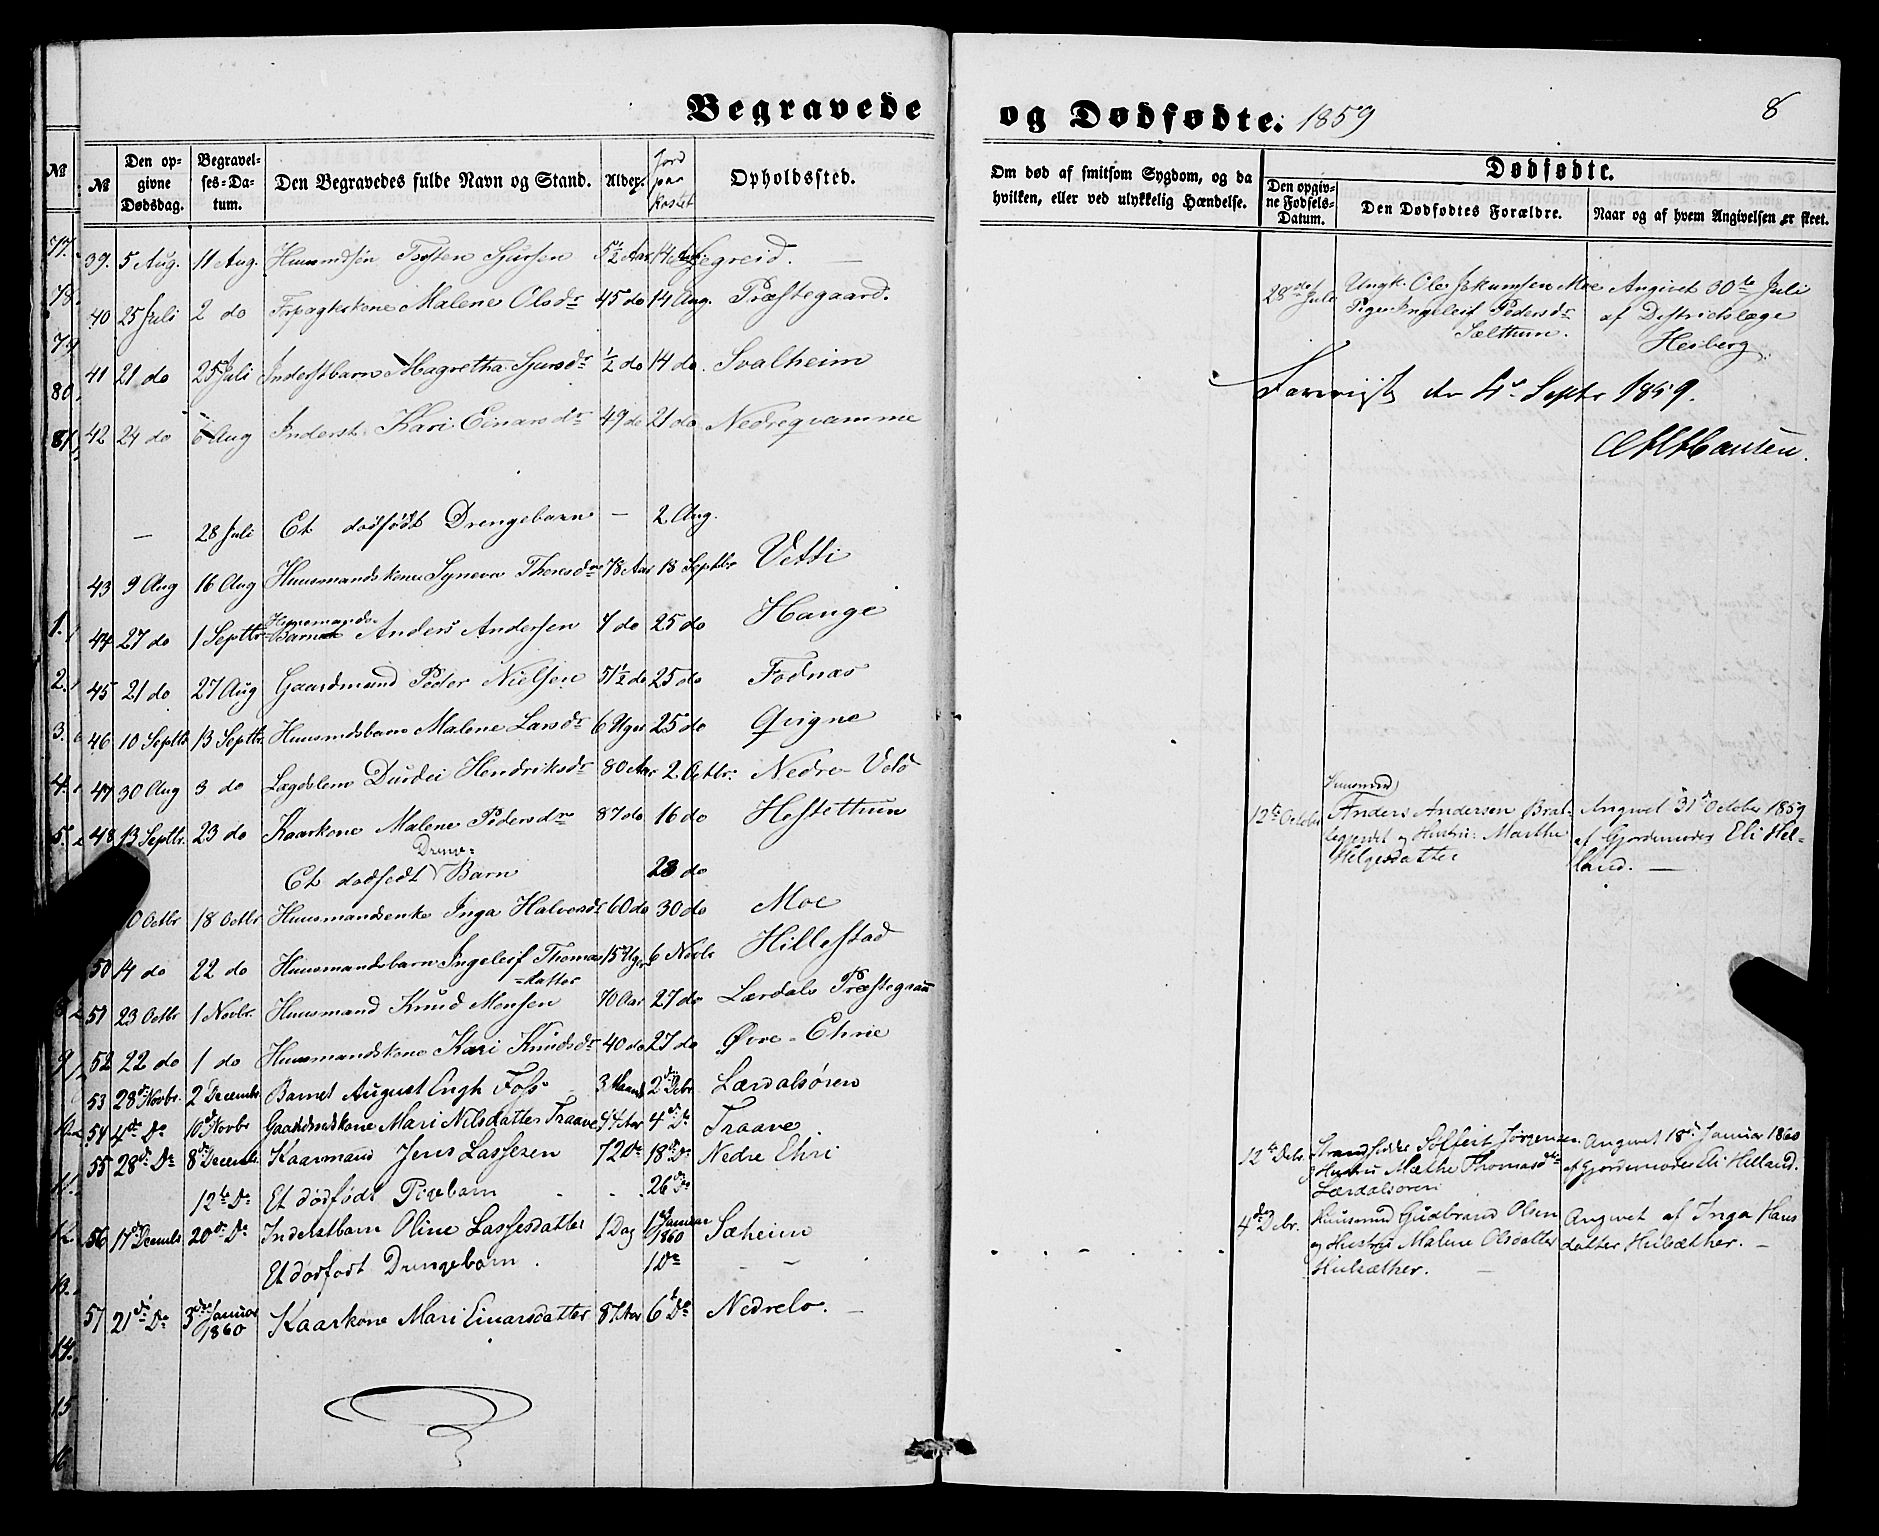 Begravede og Dødfødte. 1859 8
№ Den opgivne Dødsdag. Begravelses-Datum. Den Begravedes fulde Navn og Stand. Alder. Jord paa kastet Opholdssted. Om død af smitsom Sygdom, og da hvilken, eller ved ulykkelig Hændelse. Dødfødte.
Den opgivne Fødsels-Datum. Den Dødfødtes Forældre. Naar og af hvem Angivelsen er skeet.
39. 5 Aug. 11 Aug. Sjursen 5½ Aar 14
40 25 Juli 2 do Malene Olsdr 45 do 14 Aug. Præstegaard.
41 21 do 25 Juli Inderstbarn Magretha Sjursdr ½ do 14 do. Svalheim
42 24 do 6 Aug Inderst Kari Einarsdr 49 do 21 do Nedreqvamme
— 28 Juli Et dødfødt Drengebarn — 2 Aug.
43 9 Aug 16 Aug Huusmandskone Synneva 78 Aar 18 Septbr Vetti
44 27 do 1 Septbr Huusmands-Barnet Anders Andersen 4 do 25 do Hauge
45 21 do 27 Aug Gaardmand Peder Nielsen 51½ do 25 do Fodnæs
46 10 Septbr 13 Septbr. Huusmdsbarn Malene Larsdr 6 Uger 25 do Qvigne
47 30 Aug 3 do Lægdslem Durdei Hendriksdr 80 Aar 2 Octbr. Nedre-Vold
48 13 Septbr. 23 do Kaarkone Malene Pedersdr 87 do 16 do Hestethun
Et dødfødt Drenge-Barn 23 do
10 Octbr 18 Octbr Huusmandsenke Inga Halvorsdr 60 do 30 do Moe
50 14 do 22 do Huusmandsbarn Ingeleif Thomas=datter 15 Uger 6 Novbr Hillestad
51 23 Octbr 1 Novbr. Huusmand Knud Monsen 70 Aar 27 do Lærdals Præstegaard
52 22 do 1 do Huusmandskone Kari Knudsdr 40 do 27 do Øvre-Ehrie
53 28 Novbr. 2 Decembr Barnet August Engh Foss 3 Maand 2 Debr Lærdalsøren
54 4de Do 10 Novbr Gaardmdskone Mari Nilsdatter Traave 44 Aar 4 Do Traave
55 28 Do 8 Decembr Kaarmand Jens Lassesen 72 Do 18 Do Nedre Ehri
12te Do Et dødfødt Pigebarn 26 Do
56 17 Decembr 20 Do Inderstbarn Oline Lassesdatter 1 Dag 1 Januar 1860 Sæheim
Et dødfødt Drengebarn. 1 Do
57 21 Do 3 Januar 1860 Kaarkone Mari Einarsdatter 87 Aar 6 Do Nedrelo.
28de Juli Ungk. Ole Moe Pige Ingeleif Pedersdr Sælthun. Angivet 30te Juli af Districtslæge Heiberg.
den 4 Septr 1859.
12te Octobr Huusmand Anders Andersen og Hustru: Marthe Helgesdatter Angivet 31 October 1859 af Gjordemoder Eli Helland. —
12te Debr Strandsidder Jørgensen Hustru Marthe Thomasdr Lærdalsøren Angivet 18 Januar 1860 af Gjordemoder Eli Helland.
4de Debr. Huusmand Gudbrand Olsen og Hustru Malene Olsdatter Hulsæther. Angivet af Inga Hansdatter Hulsæther. —
77.
78.
79
80.
81.
1.
2.
3.
4.
5.
9
11.
12
13.
14.
15
16